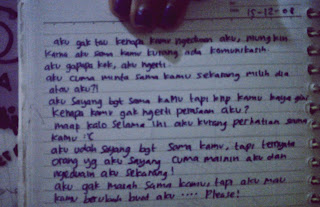 15-12-08
aku gak tau kenapa kamu ngeduain aku, mungkin
karna aku sama kamu kurang ada komunikasih
aku gapapa kok, aku ngerti..
aku cuma minta sama kamu sekarang milih dia
atau aku?!
aku sayang bgt sama kamu tapi knp kamu kaya gini
kenapa kamu gak ngerti perasaan aku?
maap kalo selama ini aku kurang perhatian sama
kamu :'(
aku udah sayang bgt sama kamu, tapi ternyata
orang yg aku sayang cuma mainin aku dan
ngeduain aku sekarang!
aku gak marah sama kamu, tapi aku mau
kamu berubah buat aku .... Please!